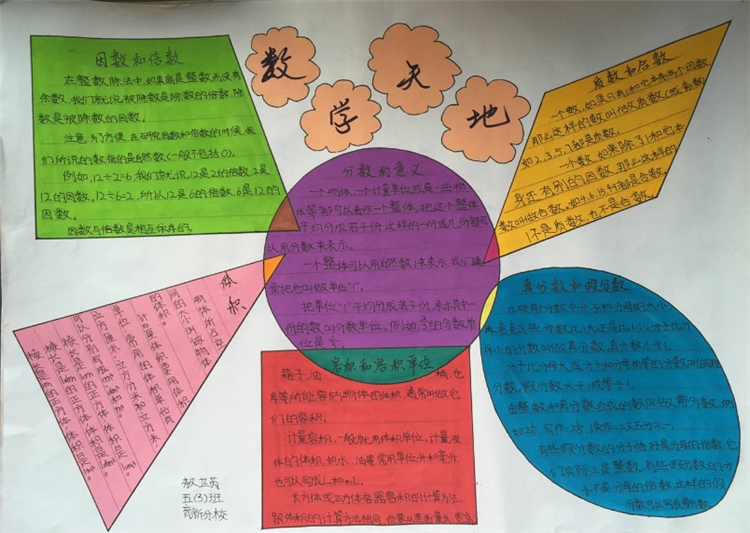 数学天地
因数和倍数
在整数除法中,如果商是整数而没有
余数,我们就说被除数是除数的倍数,除
数是被除数的因数。
注意:为了方便,在研究因数和倍数的时候,我
们所说的数指的是自然数(一般不包括0)。
例如,12÷2=6,我们就说12是2的倍数,2是
12的因数。12÷6=2,所以12是6的倍数,6是12的
因数。
因数与倍数是相互依存的。
质数和合数
一个数,如果只有1和它本身两个因数,
那么这样的数叫做质数(或素数)
如2、3、5、7都是质数。
一个数,如果除了1和它本
身还有别的因数,那么这样的
数叫做合数。如4、6、15、49都是合数。
1不是质数,也不是合数。
分数的意义
一个物体、一个计量单位或是一些物
体等都可以看作一个整体。把这个整体
平均分成若干份,这样的一份或几份都可
以用分数来表示。
一个整体可以用自然数1来表示,我们通
常把它叫做单位"1"。
把单位"1"平均分成若干份,表示其中一
份的数叫分数单位。例如
的分数单
位是
体积
物体所占空
间的大小叫做物体
的体积。
计量体积要用体积
单位,常用的体积单位有
立方厘米、立方分米和立方米,
可以分别写成cm³、dm³和m³。
棱长是1cm的正方体,体积是1cm³。
棱长是1dm的正方体,体积是1dm³。
棱长是1m的正方体,体积是1m³。
容积和容积单位
箱子、油
桶、仓
库等所能容纳物体的体积,通常叫做它
们的容积。
计量容积,一般就用体积单位。计量液
体的体积,如水、油等,常用容积单位升和毫升,
也可以写成L和mL。
长方体或正方体容器容积的计算方法,
跟体积的计算方法相同,但要从里面量长、宽、高
真分数和假分数
比较每个分数中分子和分母的大小,
再看看这些分数比1大还是比1小。分子比分
母小的分数叫做真分数。真分数小于1。
分子比分母大或分子和分母相等的分数叫做假
分数。假分数大于1或等于1。
由整数和真分数合成的数叫做带分数。例
读作二又五分之一。
有些假分数的分子恰好是分母的倍数,它
们实际上是整数。有些假分数的分
子不是分母的倍数,这样的假
分数可以写成带分数
五(3)班
育新分校